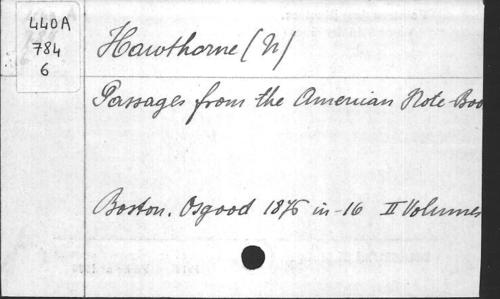 440A
784
6
Hawthorne (N)
Passages from the American Note Boo
Boston. Osgood 1876 in-16 II Volumes